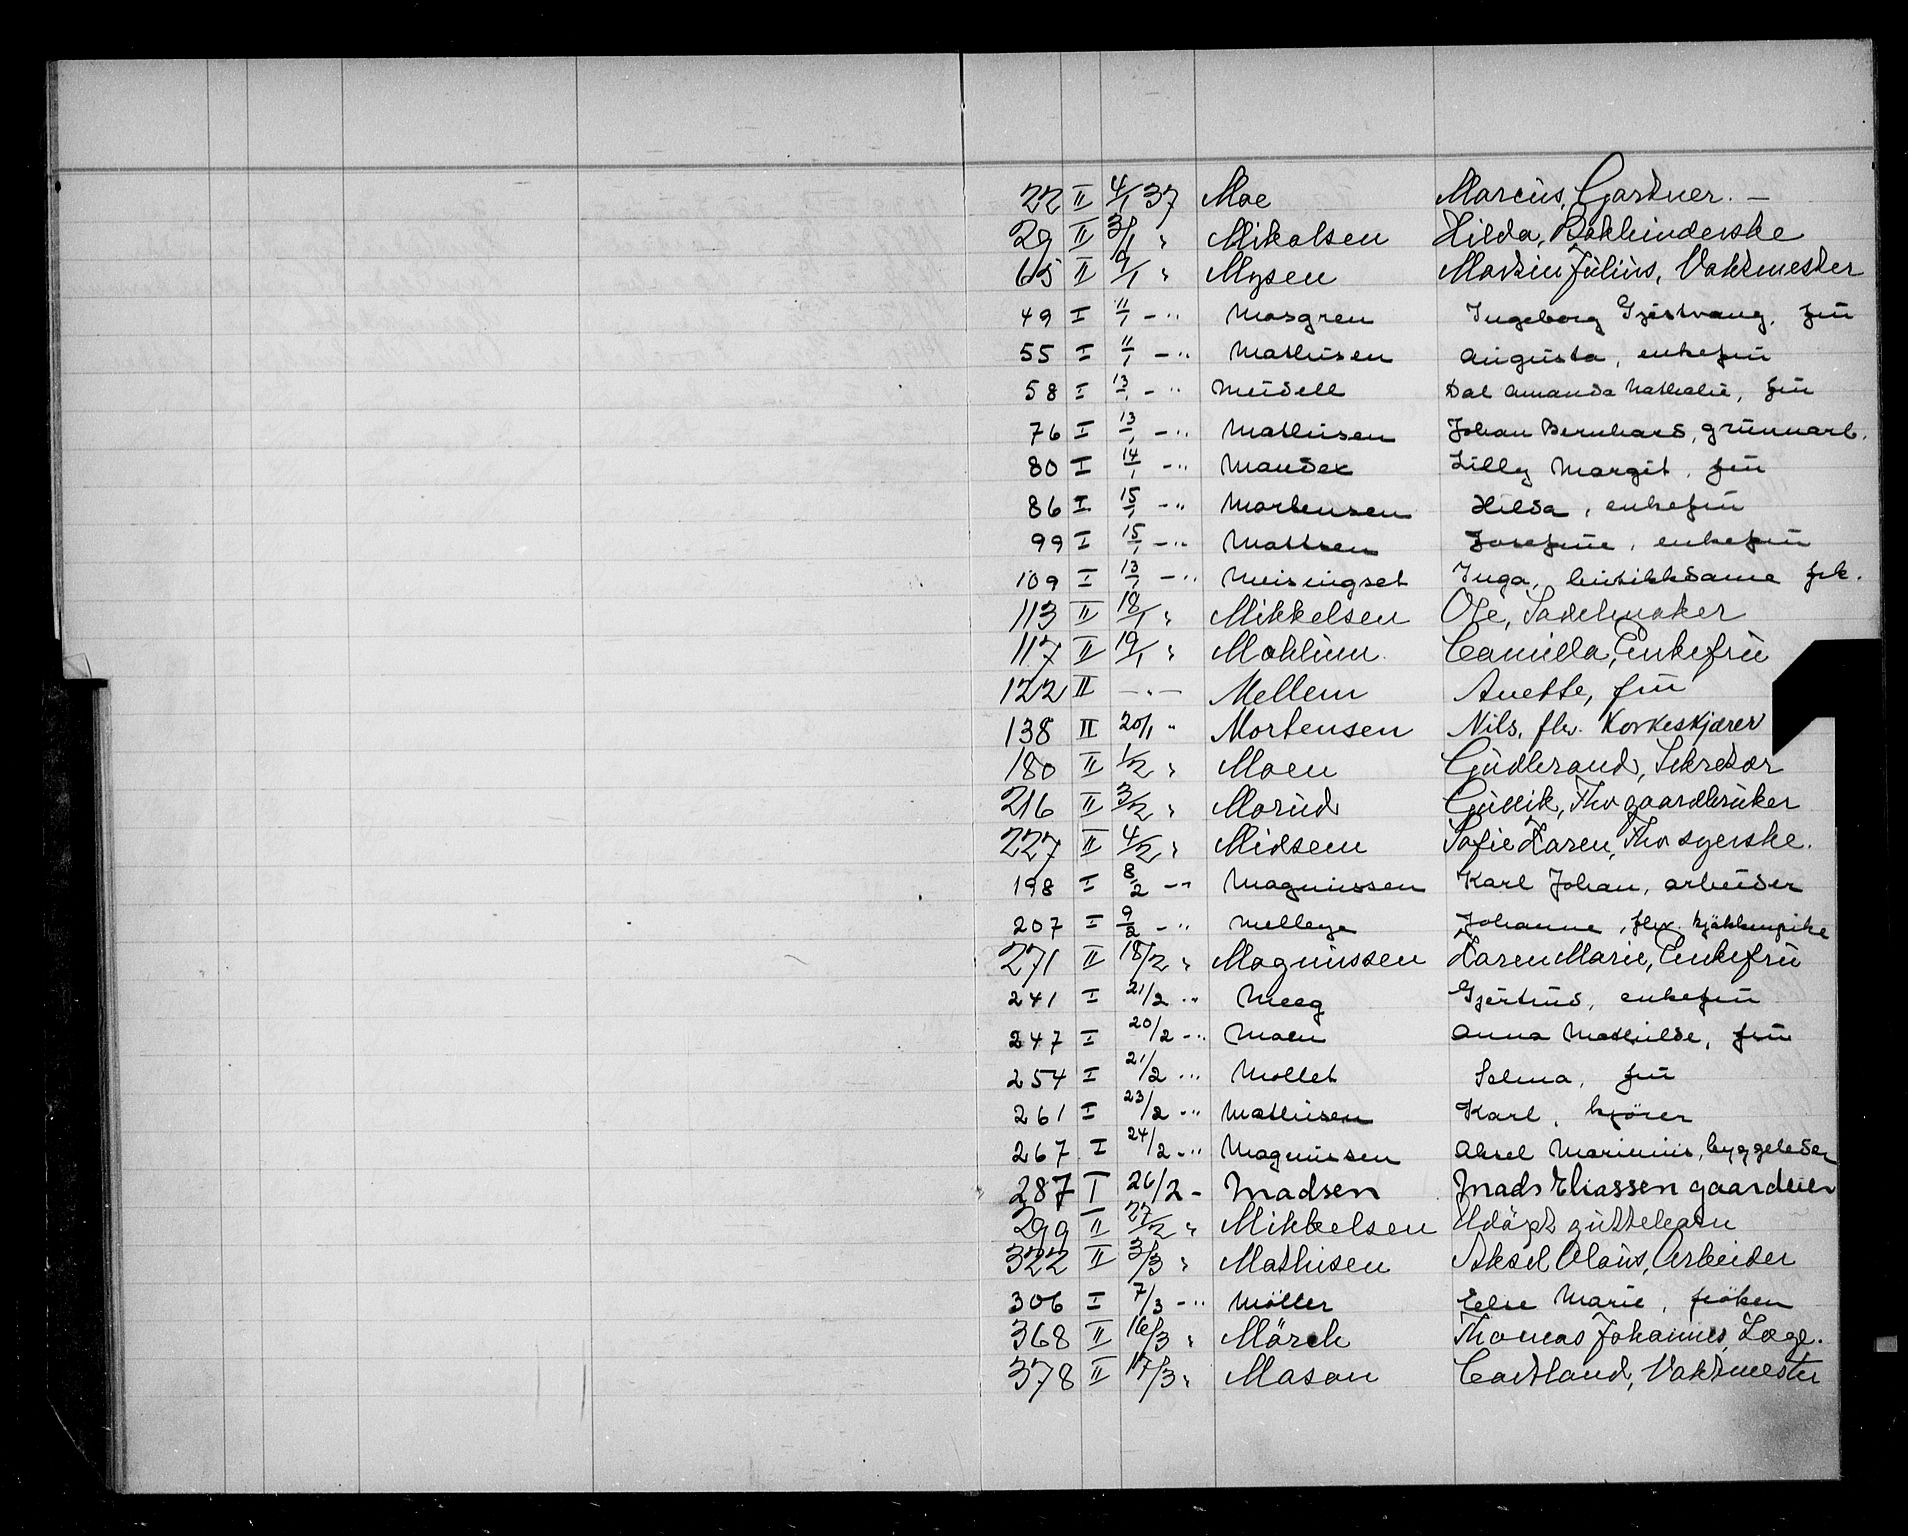 22 II 4/1 37 Moe Marcus, Gartner. –
29 II 3/1 " Mikalsen Hilda, Bokbinderske
65 II 9/1 " Mysen Martin Julius, Vaktmester
49 I 11/1 - " Mosgren Ingeborg Gjestvang, fru
55 I 11/1 - " Mathisen Augusta, enkefru
58 I 13/1 - " Meidell Dal Amanda Nathalie, fru
76 I 13/1 - " Mathisen Johan Bernhard, grunnarb.
80 I 14/1 - " Mander Lilly Margit, fru
86 I 15/1 - " Mortensen Hilda, enkefru
99 I 15/1 - " Mattsen Josefine, enkefru
109 I 13/1 - " Meisingset Inga, butikkdame frk.
113 II 18/1 " Mikkelsen Ole, Sadelmaker
117 II 19/1 " Moklum Camilla, Enkefru
122 II - " - Mellem Anette, fru
138 II 20/1 " Mortensen Nils, fhv. Korkeskjærer
180 II 1/2 " Moen Gudbrand, Sekretær
216 II 3/2 " Morud Gullik, Fhv gaardbruker
227 II 4/2 " Midsem Sofie Karen, Fhv syerske.
198 I 8/2 - " Magnussen Karl Johan, arbeider
207 I 9/2 - " Mellbye Johanne, fhv. kjökkenpike
271 II 18/2 " Magnussen Karen Marie, Enkefru
241 I 21/2 - " Meeg Gjertrud, enkefru
247 I 20/2 - " Moen Anna Mathilde, fru
254 I 21/2 - " Mollet Selma, fru
261 I 23/2 - " Mathisen Karl, kjörer
267 I 24/2 - " Magnussen Aksel Marinius, byggeleder
287 I 26/2 - Madsen Mads Eliassen gaardeier
299 II 27/2 " Mikkelsen Udöpt guttebarn
322 II 3/3 " Mathisen Aksel Olaus, Arbeider
306 I 7/3 - " Möller Else Marie, fröken
368 II 16/3 " Mörch Thomas Johannes, Læge.
378 II 17/3 " Mason Cortland, Vaktmester